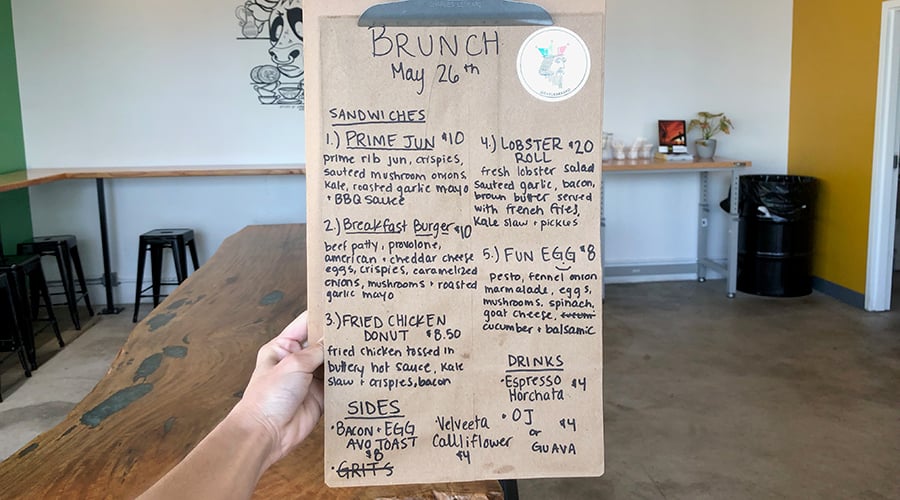 BRUNCH
May 26th
SANDWICHES
1.) PRIME JUN $10
prime rib jun, crispies,
sauteed mushroom onions,
kale, roasted garlic mayo
+ BBQ sauce
2.) Breakfast Burger $10
beef patty, provolone,
american + cheddar cheese
eggs, crispies, caramelized
onions, mushrooms + roasted
garlic mayo
3.) FRIED CHICKEN
DONUT $8.50
fried chicken tossed in
buttery hot sauce, kale
slaw + crispies, bacon
4.) LOBSTER $20
ROLL
fresh lobster salad
sauteed garlic, bacon,
brown butter served
with french fries,
kale slaw + pickles
5.) FUN EGG $8
pesto, fennel onion
marmalade, eggs,
mushrooms, spinach,
goat cheese,
cucumber + balsamic
SIDES
· BACON + EGG
AVO TOAST
$8
· GRITS
· Velveeta
Calliflower
$4
DRINKS
· Espresso $4
Horchata
· OJ $4
or
GUAVA